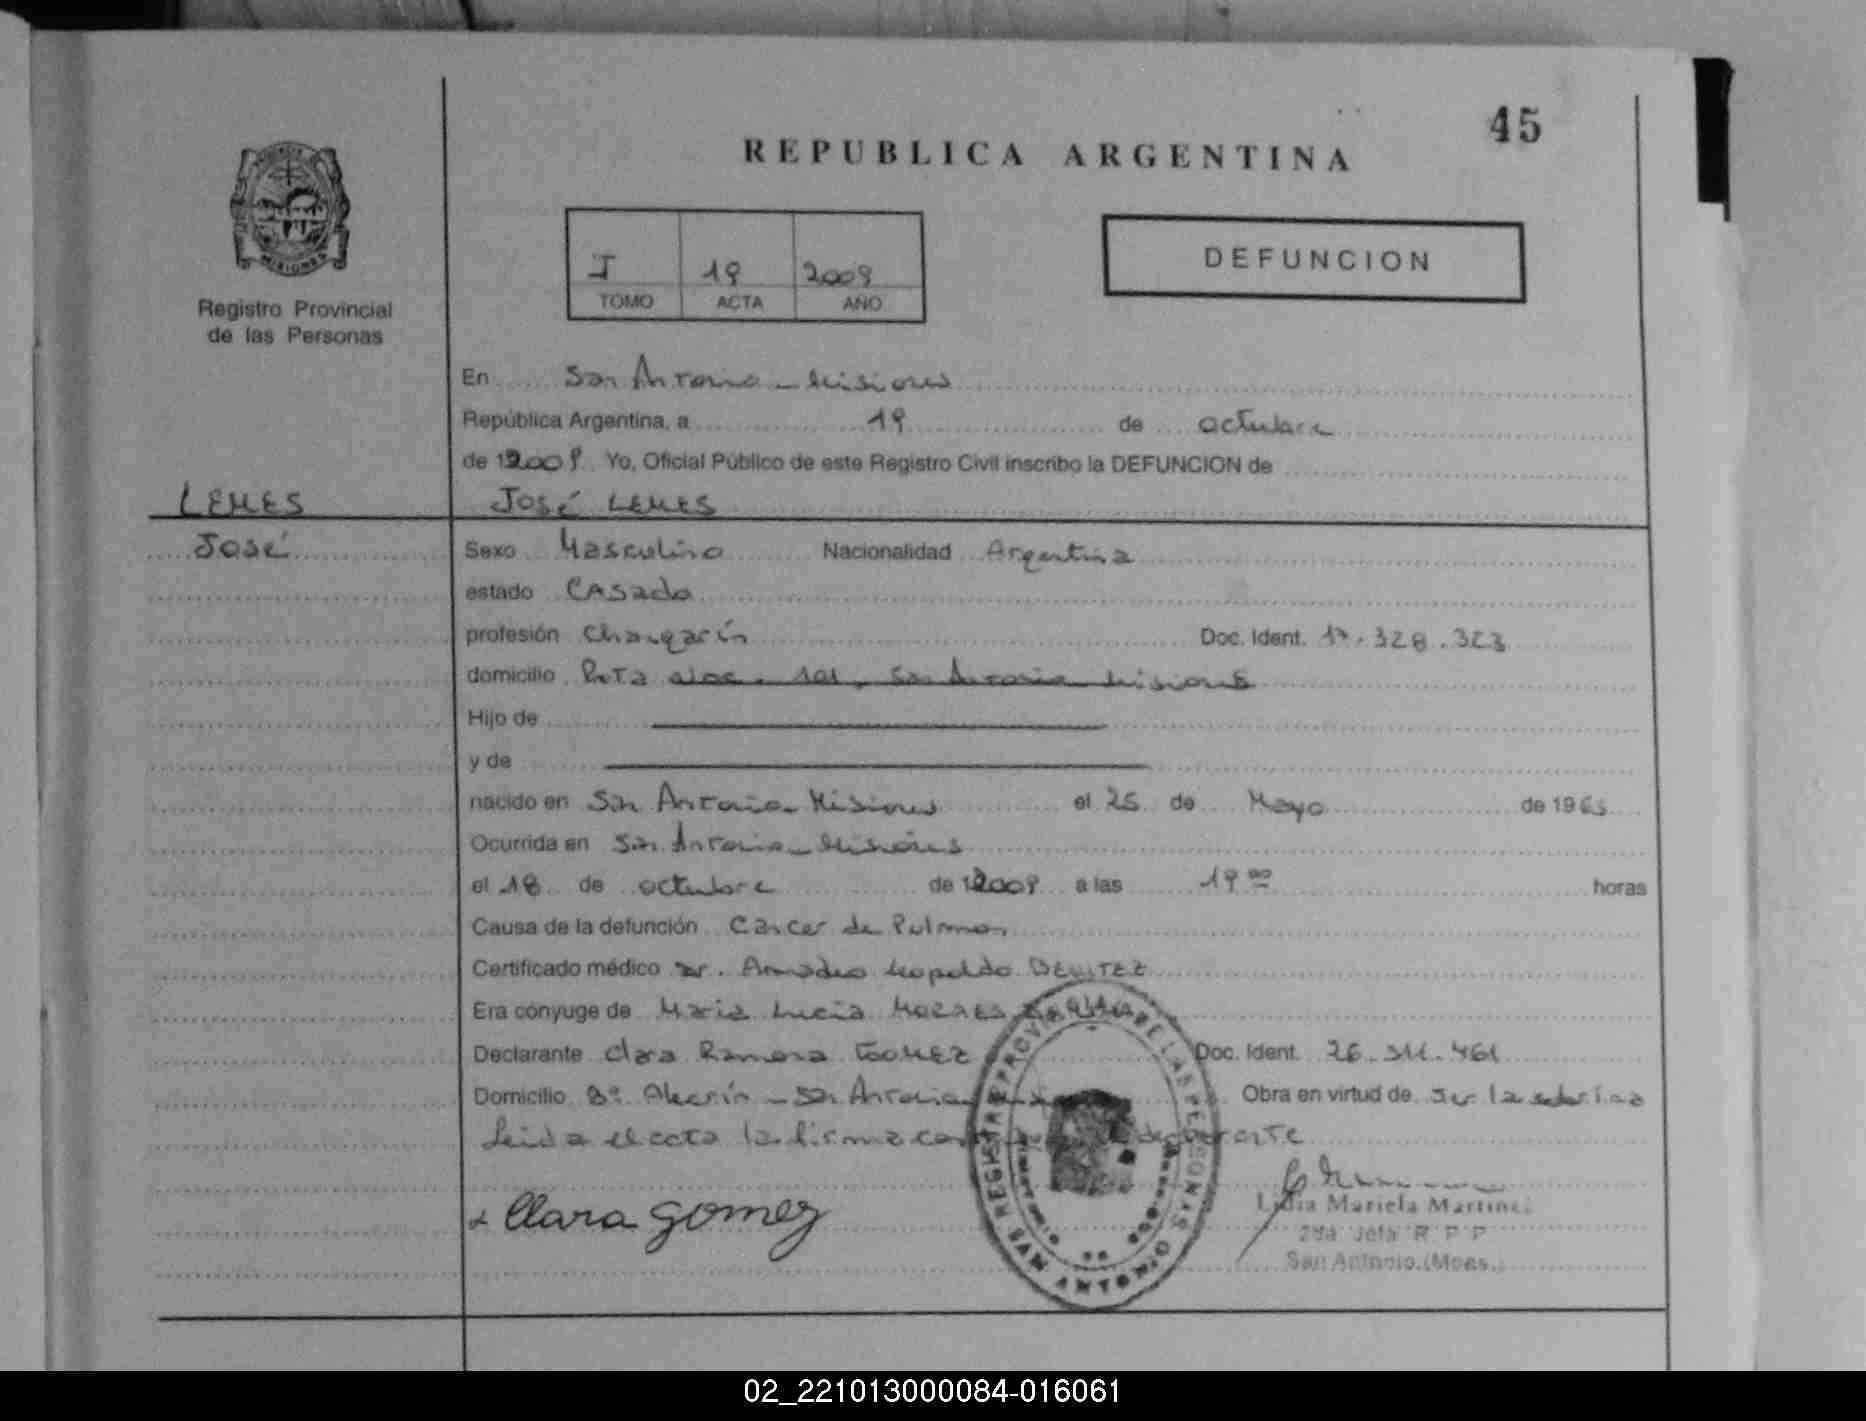 45
REPUBLICA ARGENTINA
PROVINCIA DE
MISIONES
Registro Provincial
de las Personas
I 19 2009
TOMO ACTA AÑO
DEFUNCION
En San Antonio - Misiones
República Argentina, a 19 de octubre
de 2009 Yo, Oficial Público de este Registro Civil inscribo la DEFUNCION de
LEMES José LEMES
José Sexo Masculino Nacionalidad Argentina
estado Casado
profesión Changarín Doc. Ident. 17.328.323
domicilio Ruta 101, San Antonio Misiones
Hijo de
y de
nacido en San Antonio - Misiones el 25 de Mayo de 1965
Ocurrida en San Antonio - Misiones
el 18 de octubre de 2009 a las 19 00 horas
Causa de la defunción Cancer de Pulmon
Certificado médico Dr. Amadeo Leopoldo BENITEZ
Era cónyuge de Maria Lucia MORAES
Declarante Clara Ramona GOMEZ Doc. Ident. 26.311.461
Domicilio Bº Alecrín - San Antonio Obra en virtud de ser la sobrina
Leida el acta la firma declarante
Clara gomez
REGISTRO PROVINCIAL DE LAS PERSONAS
SAN ANTONIO
Lidia Mariela Martinez
Jefa R P P
San Antonio.(Mnes.)
02_221013000084-016061